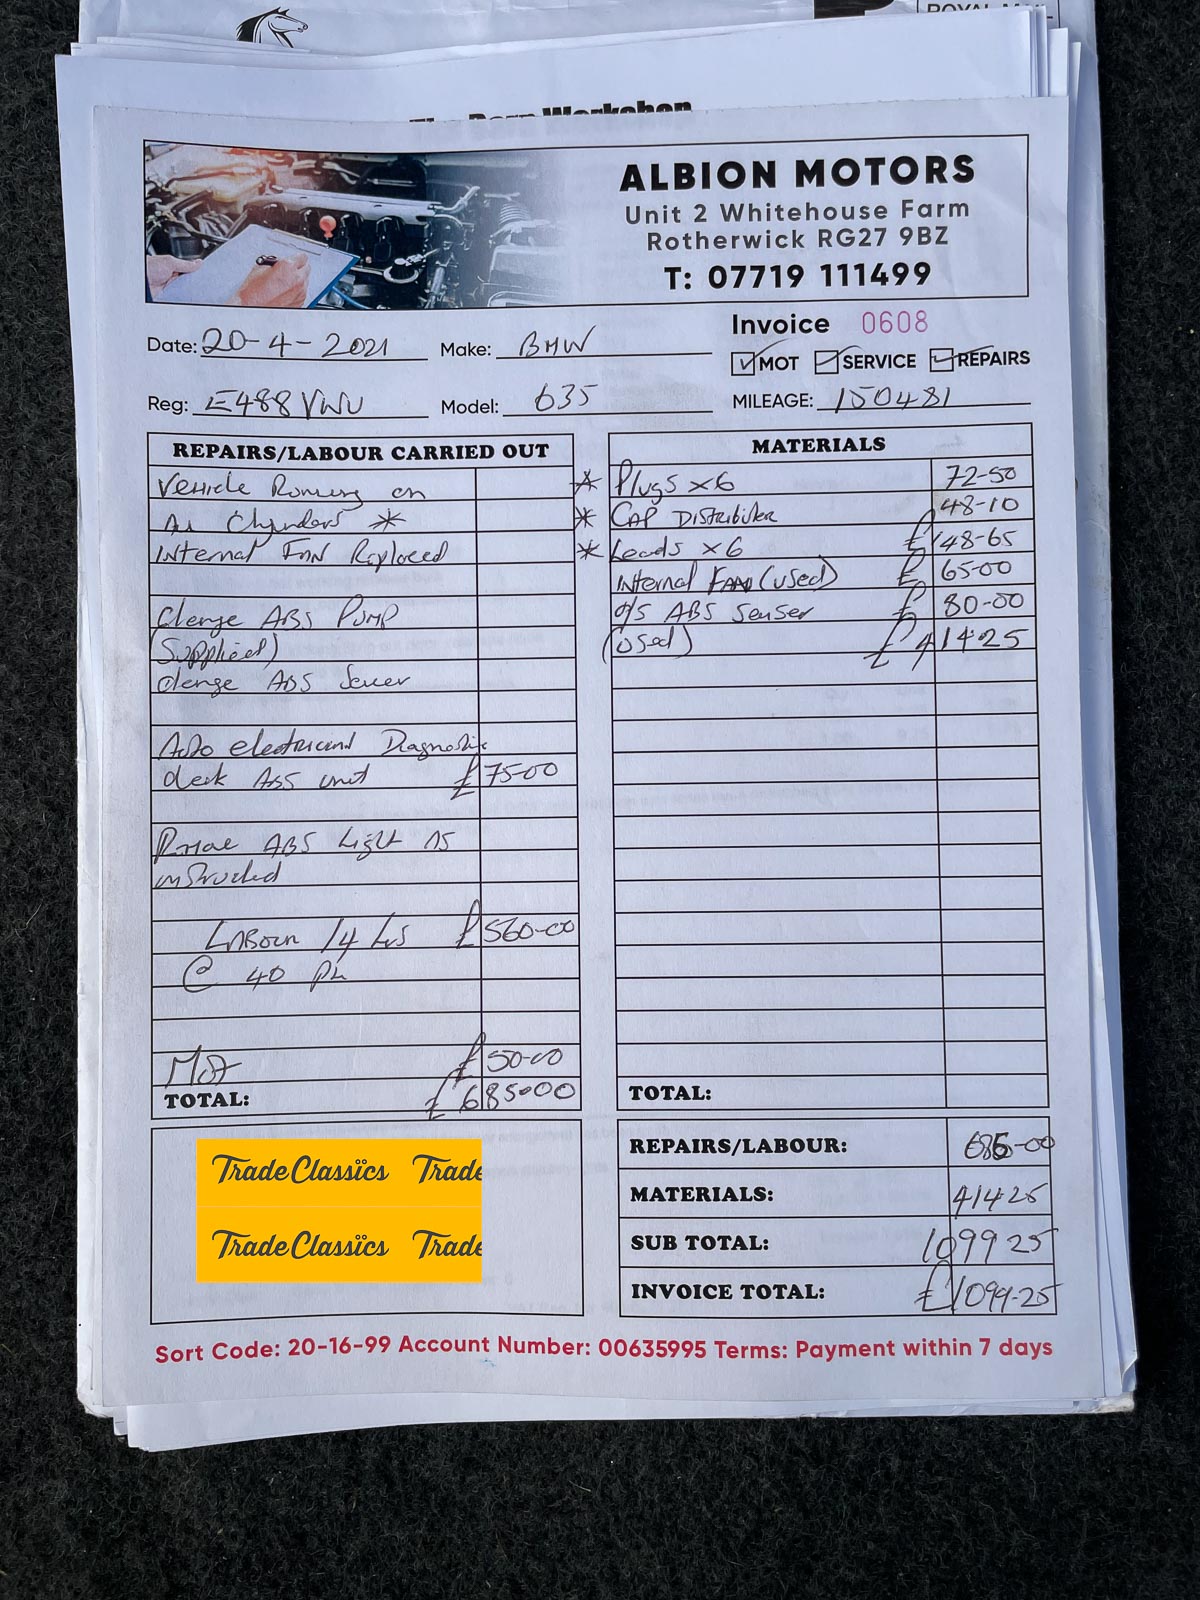 ROYAL MAIL
The Barn Workshop
ALBION MOTORS
Unit 2 Whitehouse Farm
Rotherwick RG27 9BZ
T: 07719 111499
Invoice 0608
Date: 20-4-2021 Make: BMW
MOT SERVICE REPAIRS
Reg: E488 VWU Model: 635
MILEAGE: 150481
REPAIRS/LABOUR CARRIED OUT
Vehicle Running on
All Cylinders *
Internal FAN Replaced
Change ABS Pump
(Supplied)
Change ABS Senser
Auto electrician Diagnostic
check ABS unit £75-00
ABS Light as
instructed
LABOUR 14 hrs £560-00
@ 40 Ph
MOT £50-00
TOTAL: £685-00
MATERIALS
* Plugs x6 72-50
* CAP Distributer 48-10
* Leads x6 £148-65
Internal FAN (used) £ 65-00
o/s ABS Senser £ 80-00
(used) £414-25
TOTAL:
REPAIRS/LABOUR: 685-00
MATERIALS: 414-25
SUB TOTAL: 1099 25
INVOICE TOTAL: £1099-25
Trade Classics Trade
Trade Classics Trade
Sort Code: 20-16-99 Account Number: 00635995 Terms: Payment within 7 days